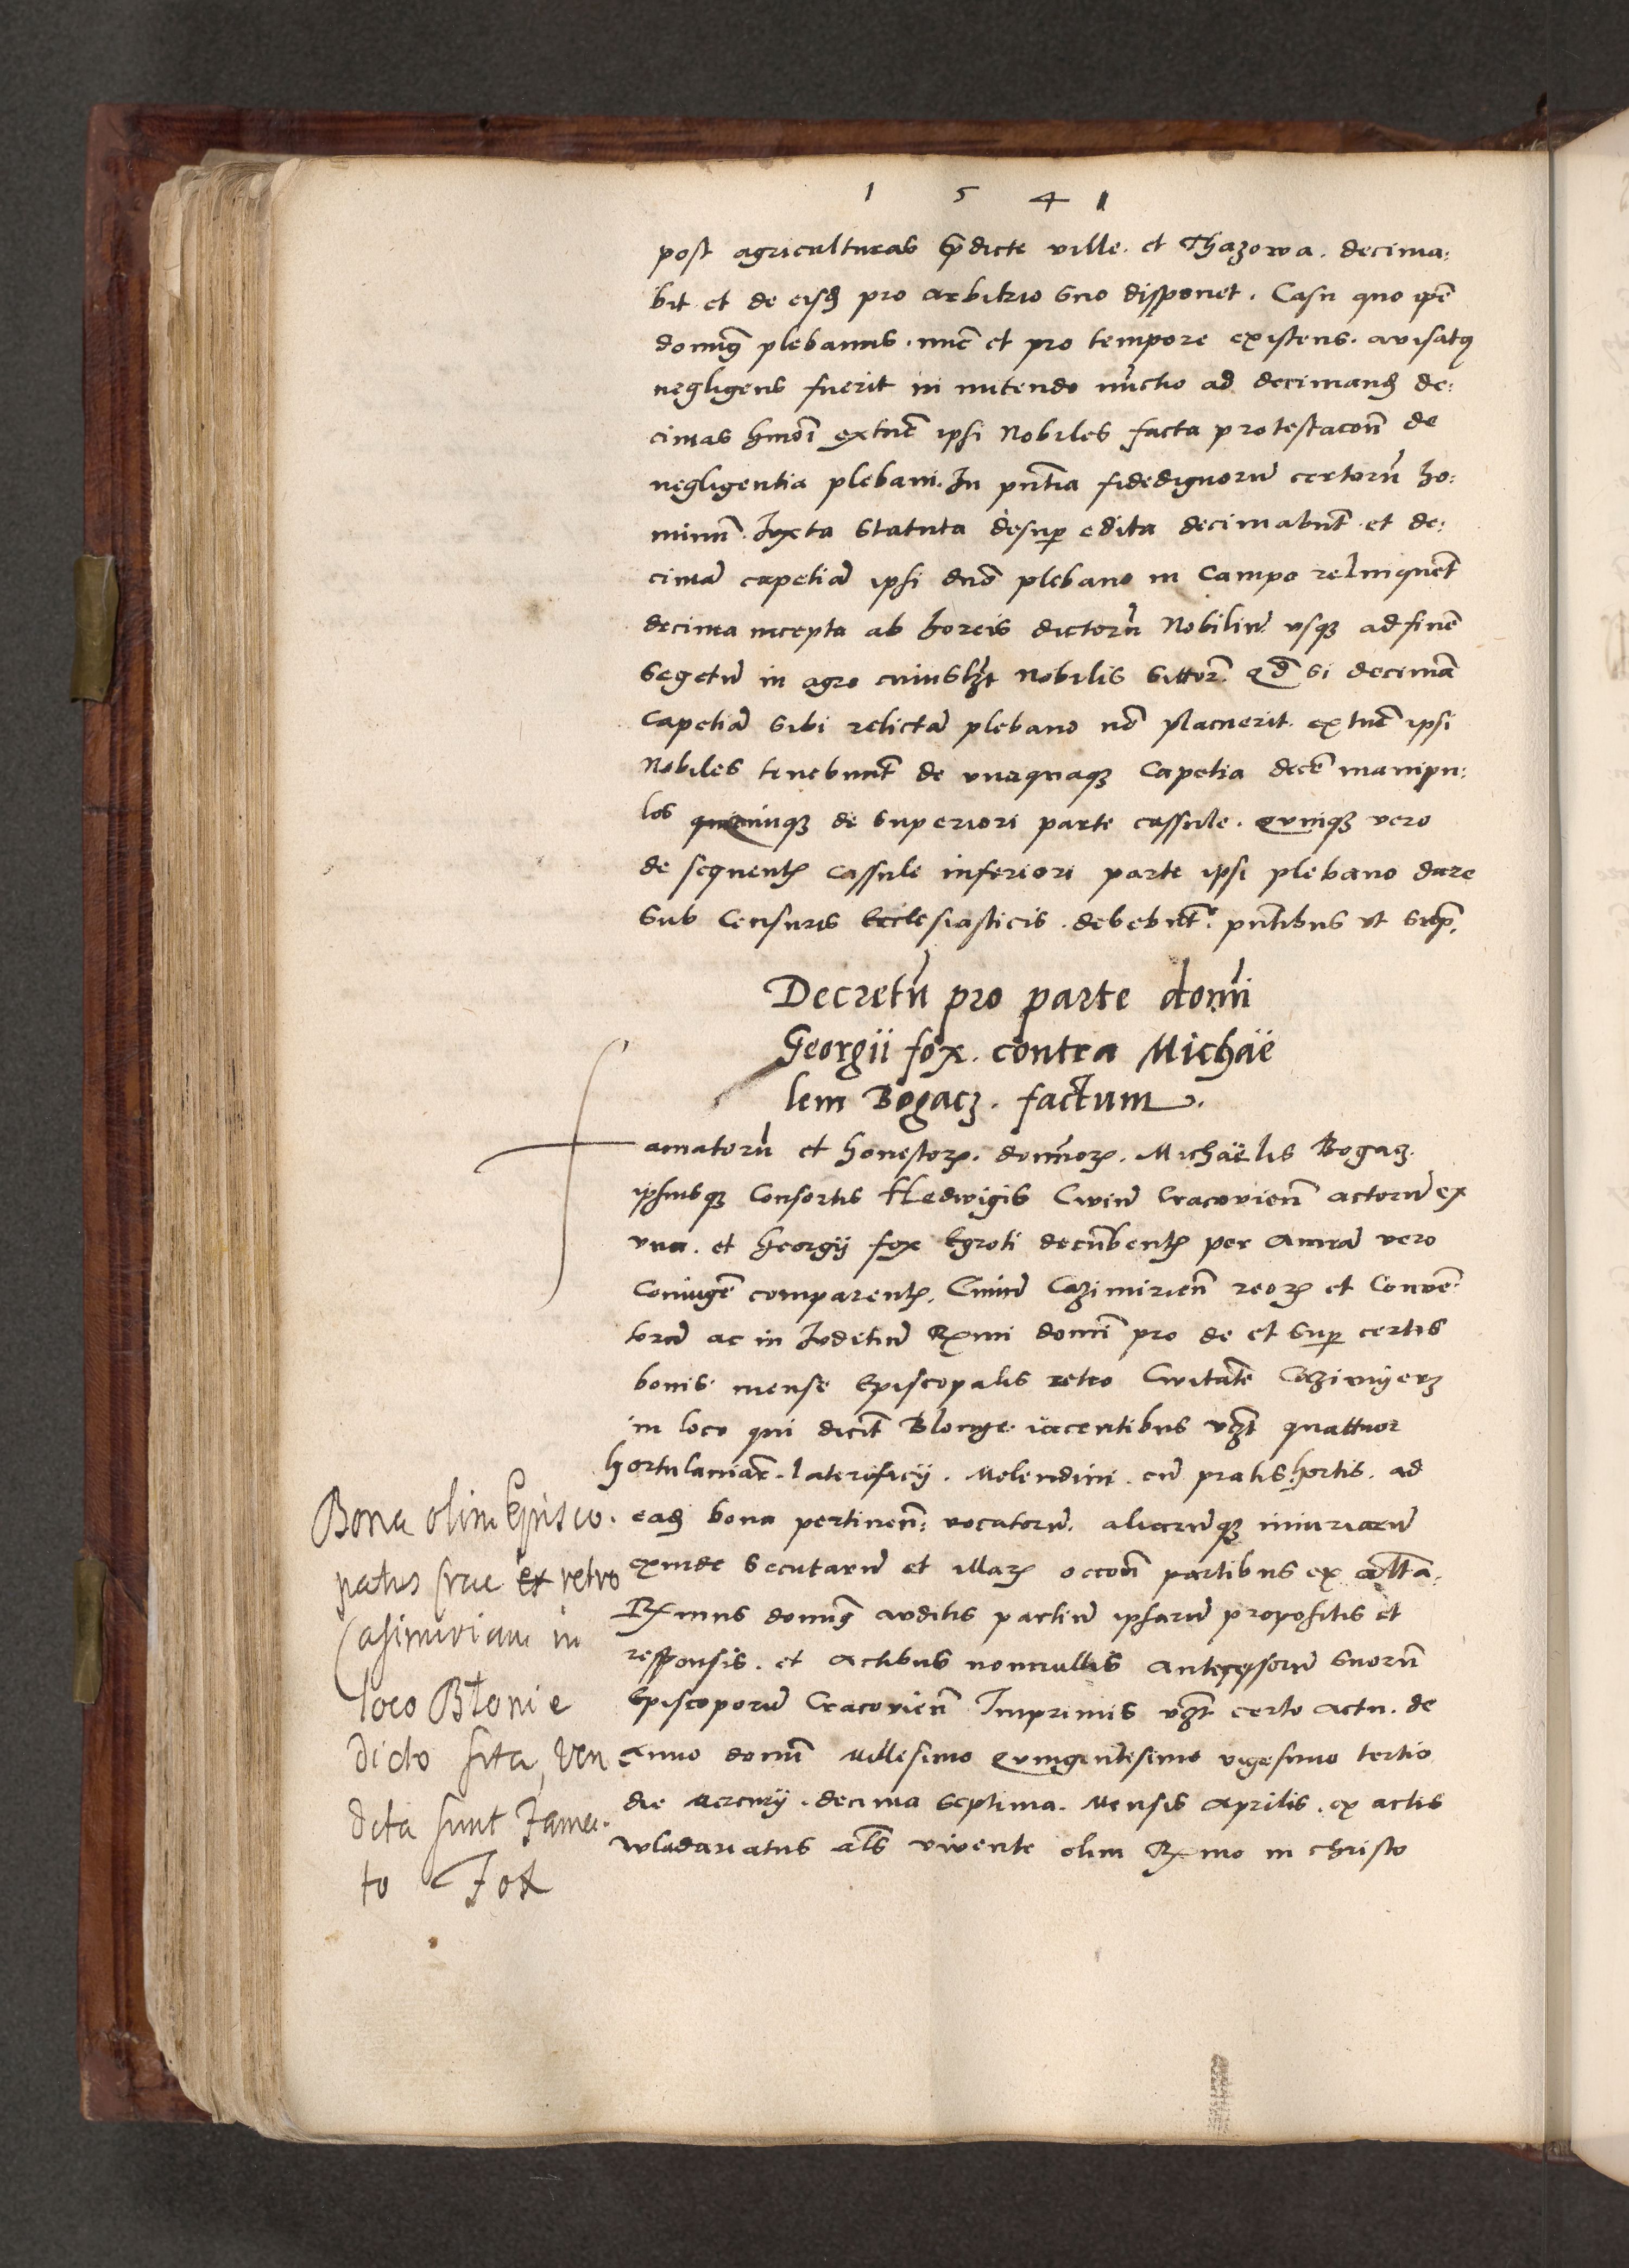 1 5 4 1
post agriculturas p̄dicte ville. et Thazowa. decima:
bit et de eisđ pro arbitrio suo disponet. Casu quo ipē
domin9 plebanus. nūc et pro tempore existens. avisat9
negligens fuerit in mitendo nūctio ad decimanđ de:
cimas hmōi extūc ipsi Nobiles facta protestacōn de
negligentia plebani. In pn̄tia fidedignorū certorū ho:
minū. Iuxta Statuta desup edita decimabūt. et de:
cimā capetiā ipsi dnō plebano in Campo relinquēt
decima incepta ab horeis dictorū Nobiliū vsq3 ad finē
Segetū in agro cuiusl3t Nobilis Sittor̄. Qđ si decimā
Capetiā sibi relictā plebano nō placuerit. extūc ipsi
Nobiles tenebunt̄ de vnaquaq3 Capetia decē manipu:
los quinuq3 de superiori parte cassule. Quinq3 vero
de sequentɀ Cassule inferiori parte ipsi plebano dare
Sub Censuris Ecclesiasticis. debebūt. pn̄tibus vt sup̄.
Decretū pro parte domī
Georgii fox. contra Michaë
lem Bogacz. factum.
Famatorū et honestorɀ. domīorɀ. Michaëlis Bogacz.
ipsiusq3 Consortis Hedwigis Civiū Cracovień actorū ex
vna. et Georgij fox Egroti decūbentɀ per Annā vero
Coniugē comparentɀ. Civiū Cazimirień reorɀ et Conve̅:
torū ac in Iuditiū Rxmi domī pro de et sup certis
bonis. mense Episcopalis retro Civitatē Cazimiɀerɀ
in loco qui dicit̄ Blonye. iacentibus v3t quattuor
hortulaniar̄. lateroficij. Molendini. cū pratis hortis. ad
eađ bona pertineń: vocatorū. aliarūq3 iniuriarū
exinde Secutarū et illarɀ occōn partibus ex alt̄a.
Rxmus domin9 auditis partiū ipsarū propositis et
responsis. et Actibus nonnullis Antecessorū Suorū
Episcoporū Cracovień Imprimis v3t certo actu. de
Anno domī Millesimo Quingentesimo vigesimo tertio
die Mercurij. decima Septima. Mensis Aprilis. ex actis
wladariatus al̄s vivente olim Rxmo in Christo
Bona olim Episco.
patus Crac ex retro
Casimiriam in
loco Błonie
dicto sita, ven
dita sunt Fama:
to Fox